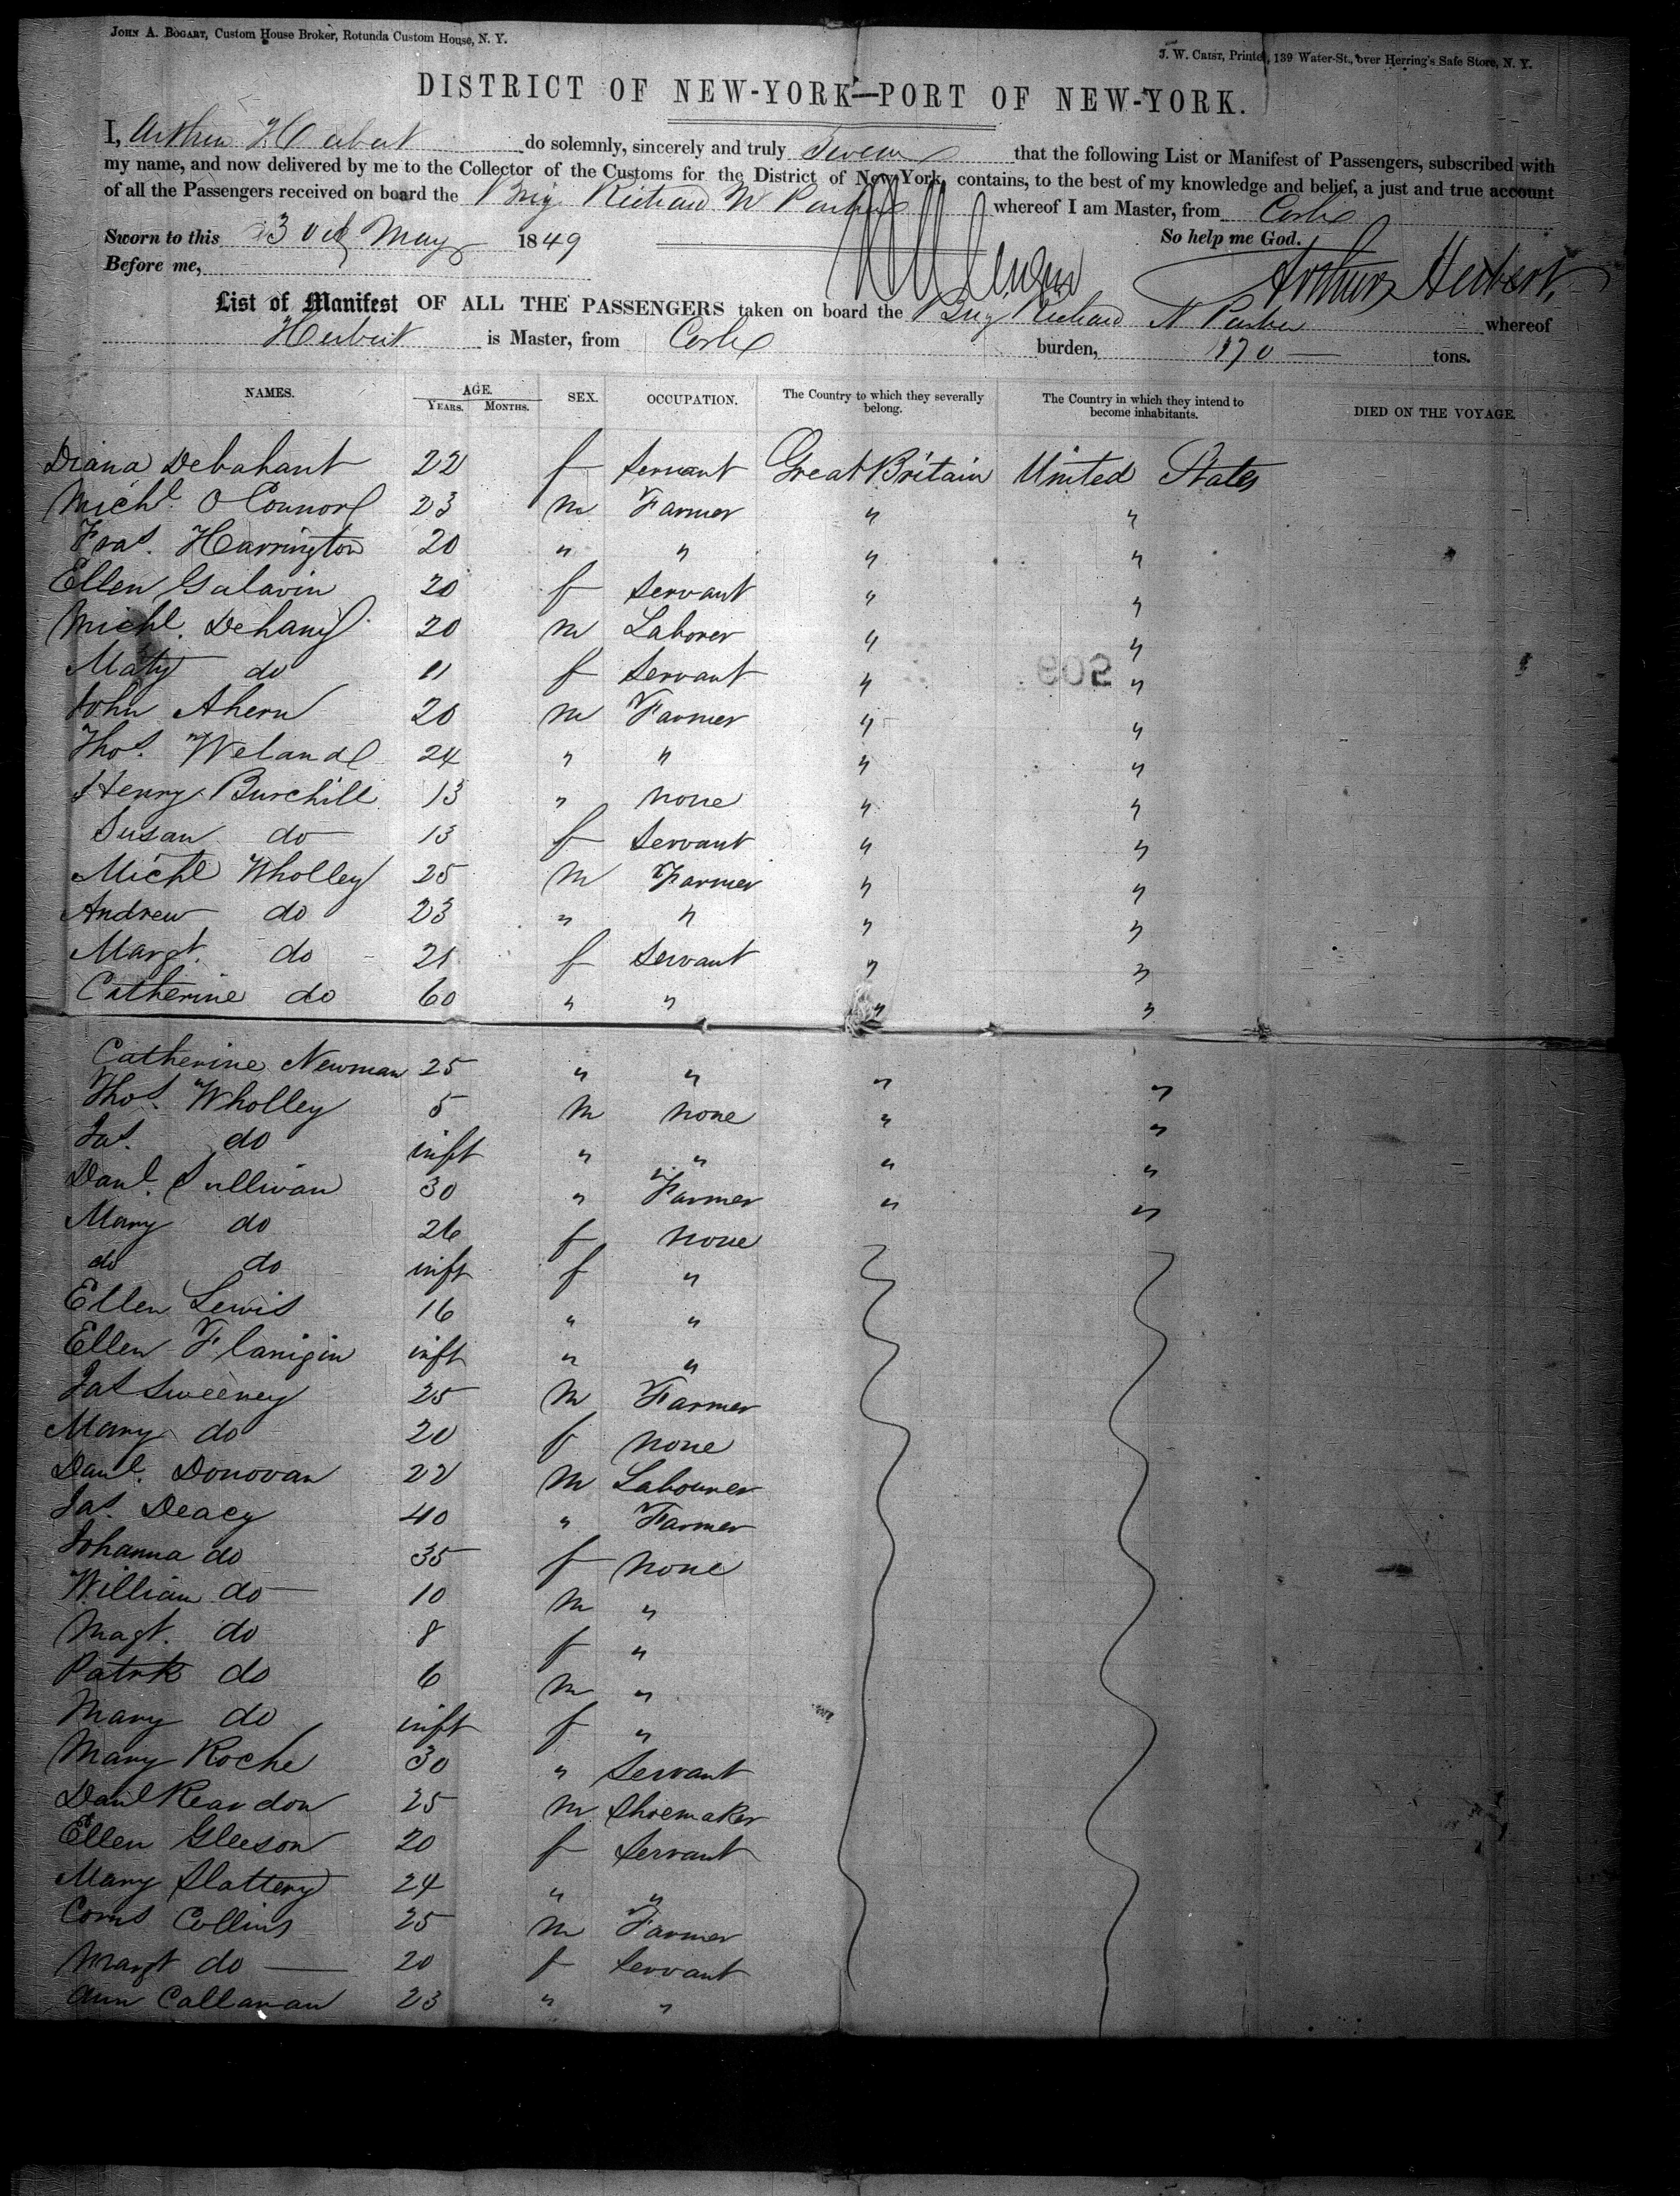 JOHN A. BOGART, Custom House Broker, Rotunda Custom House, N. Y.
J. W. CRIST, Printer, 139 Water-St., over Herring's Safe Store, N. Y.
DISTRICT OF NEW-YORK—PORT OF NEW-YORK.
I, Arthur Herbert do solemnly, sincerely and truly Swear that the following List or Manifest of Passengers, subscribed with
my name, and now delivered by me to the Collector of the Customs for the District of New York, contains, to the best of my knowledge and belief, a just and true account
of all the Passengers received on board the Brig Richard N Parker whereof I am Master, from Cork
Sworn to this May 1849 So help me God.
Before me, Arthur Herbert
List of Manifest OF ALL THE PASSENGERS taken on board the Brig Richard N Parker whereof
Herbert is Master, from Cork burden, 170 tons.
NAMES. AGE. SEX. OCCUPATION. The Country to which they severally belong. The Country in which they intend to become inhabitants. DIED ON THE VOYAGE.
YEARS. MONTHS.
Diana 22 f Servant Great Britain United States
Michl. O Connor 23 m Farmer " "
Fras. Harrington 20 " " " "
Ellen Galavin 20 f Servant " "
Michl. Dehany 20 m Laborer " "
Maty do 11 f Servant " "
John Ahern 20 m Farmer " "
Thos. Weland 24 " " " "
Henry Burchill 13 " none " "
Susan do 13 f Servant " "
Michl Wholley 25 m Farmer " "
Andrew do 23 " " " "
Margt. do 21 f Servant " "
Catherine do 60 " " " "
Catherine Newman 25 " " " "
Thos. Wholley 5 m none " "
Jas. do inft " " " "
Danl. Sullivan 30 " Farmer " "
Mary do 26 f none
do do inft f "
Ellen Lewis 16 " "
Ellen Flanigin inft " "
Jas Sweeney 25 m Farmer
Mary do 20 f none
Danl. Donovan 22 m Labourer
Jas. Deacy 40 " Farmer
Johanna do 35 f none
William do 10 m "
Magt. do 8 f "
Patrk do 6 m "
Mary do inft f "
Mary Roche 30 " Servant
Danl Reardon 25 m Shoemaker
Ellen Gleeson 20 f Servant
Mary Slattery 24 " "
Corns Collins 25 m Farmer
Margt do 20 f Servant
Ann Callanan 23 " "